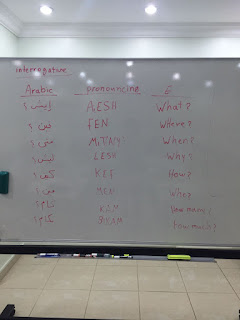 interrogature
Arabic pronouncing E
إيش؟ AESH What?
فين؟ FEN Where?
متى؟ MITAY When?
ليش؟ LESH Why?
كيف؟ KEF How?
مين؟ MEN Who?
كام؟ KAM How many?
بكام؟ BIKAM how much?